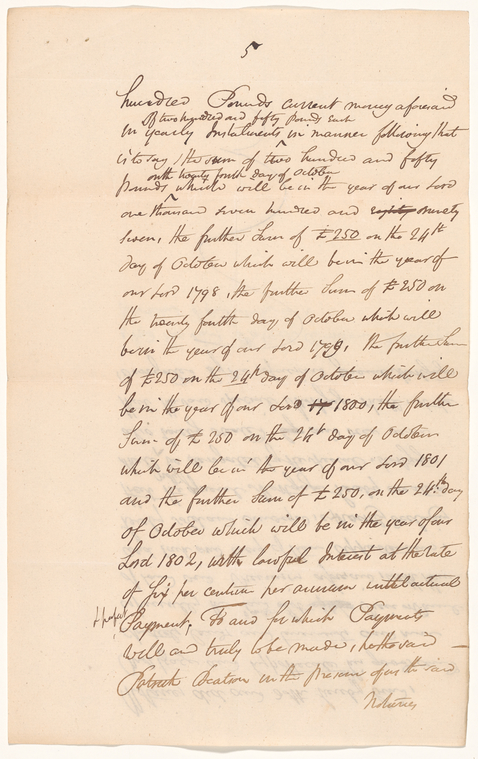 5
hundred Pounds current money aforesaid
Of two hundred and fifty Pounds Each
in Yearly Instalments in manner following that
is to say, the sum of two hundred and fifty
on the twenty fourth day of October
Pounds which will be in the year of our Lord
one thousand seven hundred and eighty ninety
seven, the further Sum of £250 on the 24th
day of October which will be in the year of
our Lord 1798, the further Sum of £250 on
the twenty fourth day of October which will
be in the year of our Lord 1799, the further Sum
of £250 on the 24th day of October which will
be in the year of our Lord 17 1800, the further
Sum of £250 on the 24t day of October
which will be in the year of our Lord 1801
and the further Sum of £250, on the 24th day
of October which will be in the year of our
Lord 1802, with lawful Interest at the rate
of Six per centum per annum until actual
Payment; To and for which Payments
well and truly to be made, he the said
Patrick in the presence of us the said
Notaries